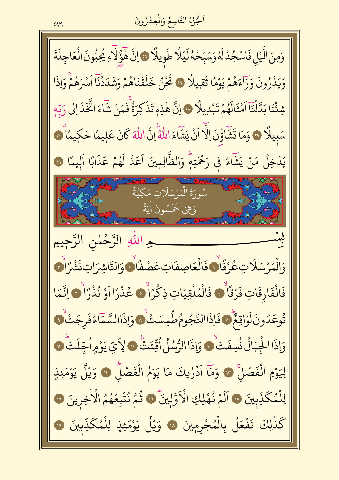 اَلْجُزْءُ التَّاسِعُ وَالْعِشْرُونَ
وَمِنَ الَّيْلِ فَاسْجُدْ لَهُ وَسَبِّحْهُ لَيْلًا طَوِيلًا ۞ اِنَّ هٰٓؤُ۬لَٓاءِ يُحِبُّونَ الْعَاجِلَةَ
وَيَذَرُونَ وَرَٓاءَهُمْ يَوْمًا ثَقِيلًا ۞ نَحْنُ خَلَقْنَاهُمْ وَشَدَدْنَٓا اَسْرَهُمْ وَاِذَا
شِئْنَا بَدَّلْنَٓا اَمْثَالَهُمْ تَبْدِيلًا ۞ اِنَّ هٰذِه۪ تَذْكِرَةٌ فَمَنْ شَٓاءَ اتَّخَذَ اِلٰى رَبِّه۪
سَبِيلًا ۞ وَمَا تَشَٓاؤُ۫نَ اِلَّٓا اَنْ يَشَٓاءَ اللّٰهُ اِنَّ اللّٰهَ كَانَ عَلِيمًا حَكِيمًا ۞
يُدْخِلُ مَنْ يَشَٓاءُ ف۪ي رَحْمَتِه۪ وَالظَّالِمِينَ اَعَدَّ لَهُمْ عَذَابًا اَلِيمًا ۞
سُورَةُ الْمُرْسَلَاتِ مَكِّيَّةٌ
وَهِيَ خَمْسُونَ اٰيَةً
بِسْمِ اللّٰهِ الرَّحْمٰنِ الرَّحِيمِ
وَالْمُرْسَلَاتِ عُرْفًا ۞ فَالْعَاصِفَاتِ عَصْفًا ۞ وَالنَّاشِرَاتِ نَشْرًا ۞
فَالْفَارِقَاتِ فَرْقًا ۞ فَالْمُلْقِيَاتِ ذِكْرًا ۞ عُذْرًا اَوْ نُذْرًا ۞ اِنَّمَا
تُوعَدُونَ لَوَاقِعٌ ۞ فَاِذَا النُّجُومُ طُمِسَتْ ۞ وَاِذَا السَّمَٓاءُ فُرِجَتْ ۞
وَاِذَا الْجِبَالُ نُسِفَتْ ۞ وَاِذَا الرُّسُلُ اُقِّتَتْ ۞ لِاَيِّ يَوْمٍ اُجِّلَتْ ۞
لِيَوْمِ الْفَصْلِ ۞ وَمَٓا اَدْرٰيكَ مَا يَوْمُ الْفَصْلِ ۞ وَيْلٌ يَوْمَئِذٍ
لِلْمُكَذِّبِينَ ۞ اَلَمْ نُهْلِكِ الْاَوَّلِينَ ۞ ثُمَّ نُتْبِعُهُمُ الْاٰخِرِينَ ۞
كَذٰلِكَ نَفْعَلُ بِالْمُجْرِمِينَ ۞ وَيْلٌ يَوْمَئِذٍ لِلْمُكَذِّبِينَ ۞